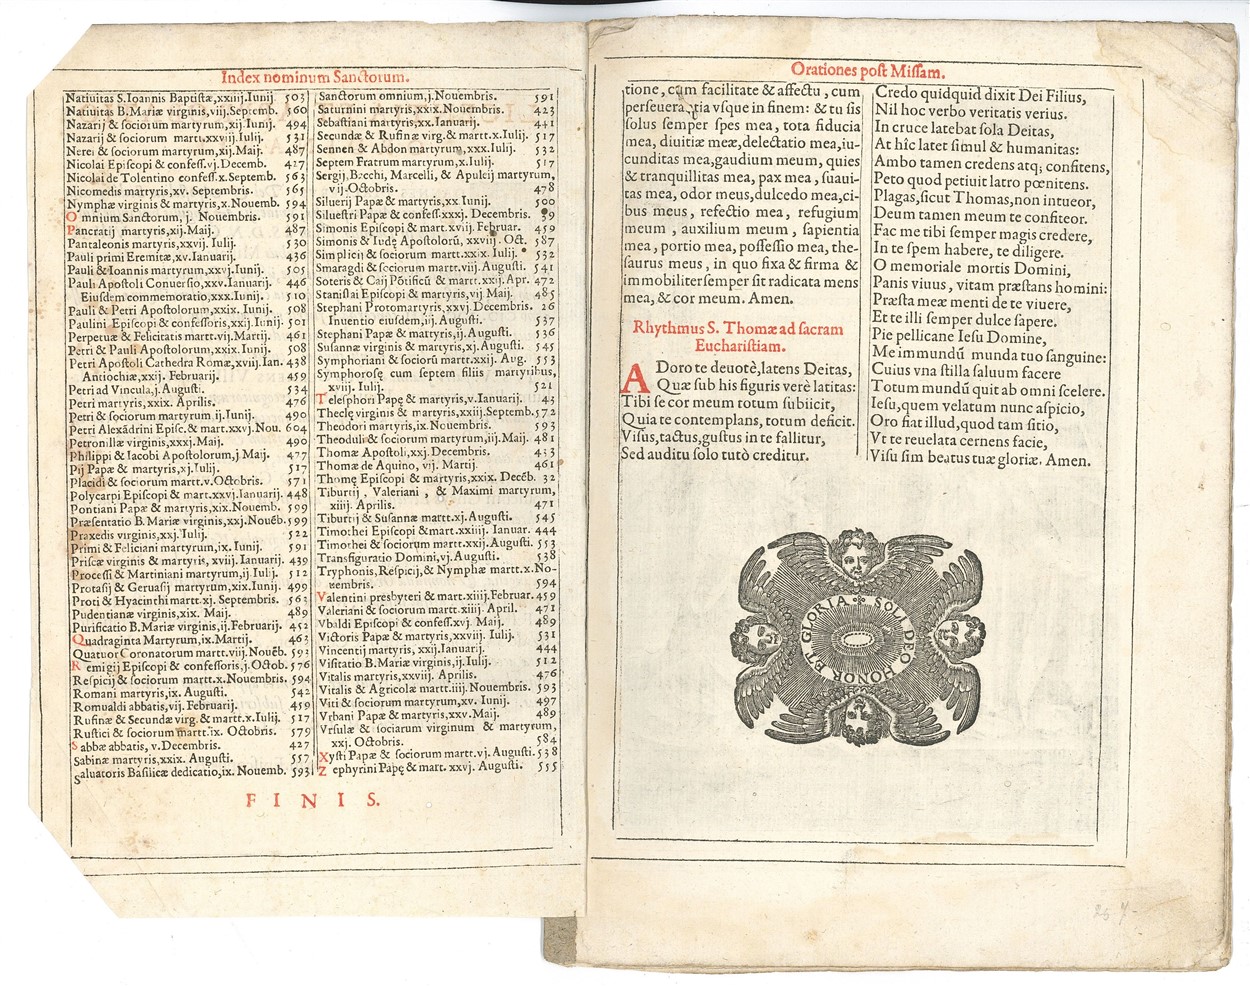 Index nominum Sanctorum.
Natiuitas S. Ioannis Baptistæ, xxiiij. Iunij 503
Natiuitas B. Mariæ virginis, viij. Septemb. 560
Nazarij & sociorum martyrum, xij. Iunij. 494
Nazarij & sociorum mart. xxviij. Iulij. 531
Nerei & sociorum martyrum, xij. Maij. 487
Nicolai Episcopi & confess. vj. Decemb. 427
Nicolai de Tolentino confess. x. Septemb. 563
Nicomedis martyris, xv. Septembris. 565
Nymphæ virginis & martyris, x. Nouemb. 594
Omnium Sanctorum, j. Nouembris. 591
Pancratij martyris, xij. Maij. 487
Pantaleonis martyris, xxvij. Iulij. 530
Pauli primi Eremitæ, xv. Ianuarij. 436
Pauli & Ioannis martyrum, xxvj. Iunij. 505
Pauli Apostoli Conuersio, xxv. Ianuarij. 446
Eiusdem commemoratio, xxx. Iunij. 510
Pauli & Petri Apostolorum, xxix. Iunij. 508
Paulini Episcopi & confessoris, xxij. Iunij. 501
Perpetuæ & Felicitatis martt. vij. Martij. 461
Petri & Pauli Apostolorum, xxix. Iunij. 508
Petri Apostoli Cathedra Romæ, xviij. Ian. 438
Antiochiæ, xxij. Februarij. 459
Petri ad Vincula, j. Augusti. 534
Petri martyris, xxix. Aprilis. 476
Petri & sociorum martyrum ij. Iunij. 490
Petri Alexãdrini Episc. & mart. xxvj. Nou. 604
Petronillæ virginis, xxxj. Maij. 490
Philippi & Iacobi Apostolorum, j Maij. 477
Pij Papæ & martyris, xj. Iulij. 517
Placidi & sociorum martt. v. Octobris. 571
Polycarpi Episcopi & mart. xxvj. Ianuarij. 448
Pontiani Papæ & martyris, xix. Nouemb. 599
Præsentatio B. Mariæ virginis, xxj. Nouẽb. 599
Praxedis virginis, xxj. Iulij. 522
Primi & Feliciani martyrum, ix. Iunij. 591
Priscæ virginis & martyris, xviij. Ianuarij. 439
Processi & Martiniani martyrum, ij. Iulij. 512
Protasij & Geruasij martyrum, xix. Iunij. 499
Proti & Hyacinthi martt. xj. Septembris. 563
Pudentianæ virginis, xix. Maij. 489
Purificatio B. Mariæ virginis, ij. Februarij. 452
Quadraginta Martyrum, ix. Martij. 463
Quatuor Coronatorum martt. viij. Nouẽb. 592
Remigij Episcopi & confessoris, j. Octob. 576
Respicij & sociorum martt. x. Nouembris. 594
Romani martyris, ix. Augusti. 542
Romualdi abbatis, vij. Februarij. 459
Rufinæ & Secundæ virg. & martt. x. Iulij. 517
Rustici & sociorum martt. ix. Octobris. 579
Sabbæ abbatis, v. Decembris. 427
Sabinæ martyris, xxix. Augusti. 557
Saluatoris Basilicæ dedicatio, ix. Nouemb. 593
Sanctorum omnium, j. Nouembris. 591
Saturnini martyris, xxix. Nouembris. 423
Sebastiani martyris, xx. Ianuarij. 441
Secundæ & Rufinæ virg. & martt. x. Iulij. 517
Sennen & Abdon martyrum, xxx. Iulij. 532
Septem Fratrum martyrum, x. Iulij. 517
Sergij, Bacchi, Marcelli, & Apuleij martyrum,
vij. Octobris. 478
Siluerij Papæ & martyris, xx Iunij. 500
Siluestri Papæ & confess. xxxj. Decembris. 39
Simonis Episcopi & mart. xviij. Februar. 459
Simonis & Iudę Apostolorũ, xxviij. Oct. 587
Simplicij & sociorum martt. xxix. Iulij. 532
Smaragdi & sociorum martt. viij. Augusti. 541
Soteris & Caij Põtificũ & martt. xxij. Apr. 472
Stanislai Episcopi & martyris, vij Maij. 485
Stephani Protomartyris, xxvj. Decembris. 26
Inuentio eiusdem, iij. Augusti. 537
Stephani Papæ & martyris, ij. Augusti. 536
Susannæ virginis & martyris, xj. Augusti. 545
Symphoriani & sociorum martt. xxij. Aug. 553
Symphorosę cum septem filiis martyribus,
xviij. Iulij. 521
Telesphori Papę & martyris, v. Ianuarij. 43
Theclę virginis & martyris, xxiij. Septemb. 572
Theodori martyris, ix. Nouembris. 593
Theoduli & sociorum martyrum, iij. Maij. 481
Thomæ Apostoli, xxj. Decembris. 433
Thomæ de Aquino, vij. Martij. 461
Thomę Episcopi & martyris, xxix. Decẽb. 32
Tiburtij, Valeriani, & Maximi martyrum,
xiiij. Aprilis. 471
Tiburtij & Susannæ martt. xj. Augusti. 545
Timothei Episcopi & mart. xxiiij. Ianuar. 444
Timothei & sociorum martt. xxij. Augusti. 553
Transfiguratio Domini, vj. Augusti. 538
Tryphonis, Respicij, & Nymphæ martt. x. No-
uembris. 594
Valentini presbyteri & mart. xiiij. Februar. 459
Valeriani & sociorum mart. xiiij. April. 471
Vbaldi Episcopi & confess. xvj. Maij. 489
Victoris Papæ & martyris, xxviij. Iulij. 531
Vincentij martyris, xxij. Ianuarij. 444
Visitatio B. Mariæ virginis, ij. Iulij. 512
Vitalis martyris, xxviij. Aprilis. 476
Vitalis & Agricolæ martt. iiij. Nouembris. 593
Viti & sociorum martyrum, xv. Iunij. 497
Vrbani Papæ & martyris, xxv. Maij. 489
Vrsulæ & sociarum virginum & martyrum,
xxj. Octobris. 584
Xysti Papæ & sociorum martt. vj. Augusti. 538
Zephyrini Papę & mart. xxvj. Augusti. 555
FINIS.
Orationes post Missam.
tione, cum facilitate & affectu, cum
perseuerantia vsque in finem: & tu sis
solus semper spes mea, tota fiducia
mea, diuitiæ meæ, delectatio mea, iu-
cunditas mea, gaudium meum, quies
& tranquillitas mea, pax mea, suaui-
tas mea, odor meus, dulcedo mea, ci-
bus meus, refectio mea, refugium
meum, auxilium meum, sapientia
mea, portio mea, possessio mea, the-
saurus meus, in quo fixa & firma &
immobiliter semper sit radicata mens
mea, & cor meum. Amen.
Rhythmus S. Thomæ ad sacram
Eucharistiam.
Adoro te deuotè, latens Deitas,
Quæ sub his figuris verè latitas:
Tibi se cor meum totum subiicit,
Quia te contemplans, totum deficit.
Visus, tactus, gustus in te fallitur,
Sed auditu solo tutò creditur.
Credo quidquid dixit Dei Filius,
Nil hoc verbo veritatis verius.
In cruce latebat sola Deitas,
At hîc latet simul & humanitas:
Ambo tamen credens atq; confitens,
Peto quod petiuit latro pœnitens.
Plagas, sicut Thomas, non intueor,
Deum tamen meum te confiteor.
Fac me tibi semper magis credere,
In te spem habere, te diligere.
O memoriale mortis Domini,
Panis viuus, vitam præstans homini:
Præsta meæ menti de te viuere,
Et te illi semper dulce sapere.
Pie pellicane Iesu Domine,
Me immundũ munda tuo sanguine:
Cuius vna stilla saluum facere
Totum mundũ quit ab omni scelere.
Iesu, quem velatum nunc aspicio,
Oro fiat illud, quod tam sitio,
Vt te reuelata cernens facie,
Visu sim beatus tuæ gloriæ. Amen.
SOLI DEO HONOR ET GLORIA